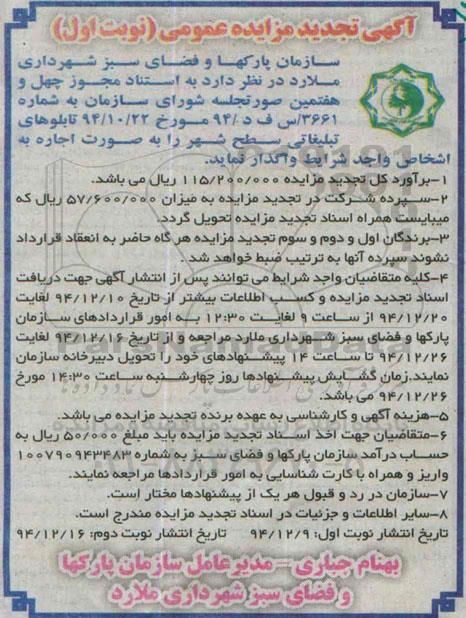 آگهی تجدید مزایده عمومی (نوبت اول)
سازمان پارکها و فضای سبز شهرداری
ملارد در نظر دارد به استناد مجوز چهل و
هفتمین صورتجلسه شورای سازمان به شماره
۳۶۶۱/س ف د /۹۴ مورخ ۹۴/۱۰/۲۲ تابلوهای
تبلیغاتی سطح شهر را به صورت اجاره به
اشخاص واجد شرایط واگذار نماید.
۱-برآورد کل تجدید مزایده ۱۱۵/۲۰۰/۰۰۰ ریال می باشد.
۲-سپرده شرکت در تجدید مزایده به میزان ۵۷/۶۰۰/۰۰۰ ریال که
میبایست همراه اسناد تجدید مزایده تحویل گردد.
۳-برندگان اول و دوم و سوم تجدید مزایده هر گاه حاضر به انعقاد قرارداد
نشوند سپرده آنها به ترتیب ضبط خواهد شد.
۴-کلیه متقاضیان واجد شرایط می توانند پس از انتشار آگهی جهت دریافت
اسناد تجدید مزایده و کسب اطلاعات بیشتر از تاریخ ۹۴/۱۲/۱۰ لغایت
۹۴/۱۲/۲۰ از ساعت ۹ لغایت ۱۲:۳۰ به امور قراردادهای سازمان
پارکها و فضای سبز شهرداری ملارد مراجعه و از تاریخ ۹۴/۱۲/۱۶ لغایت
۹۴/۱۲/۲۶ تا ساعت ۱۴ پیشنهادهای خود را تحویل دبیرخانه سازمان
نمایند.زمان گشایش پیشنهادها روز چهارشنبه ساعت ۱۴:۳۰ مورخ
۹۴/۱۲/۲۶ می باشد.
۵-هزینه آگهی و کارشناسی به عهده برنده تجدید مزایده می باشد.
۶-متقاضیان جهت اخذ اسناد تجدید مزایده باید مبلغ ۵۰/۰۰۰ ریال به
حساب درآمد سازمان پارکها و فضای سبز به شماره ۱۰۰۷۹۰۹۴۳۴۸۳
واریز و همراه با کارت شناسایی به امور قراردادها مراجعه نمایند.
۷-سازمان در رد و قبول هر یک از پیشنهادها مختار است.
۸-سایر اطلاعات و جزئیات در اسناد تجدید مزایده مندرج است.
تاریخ انتشار نوبت اول: ۹۴/۱۲/۹ تاریخ انتشار نوبت دوم: ۹۴/۱۲/۱۶
بهنام جباری - مدیرعامل سازمان پارکها
و فضای سبز شهرداری ملارد